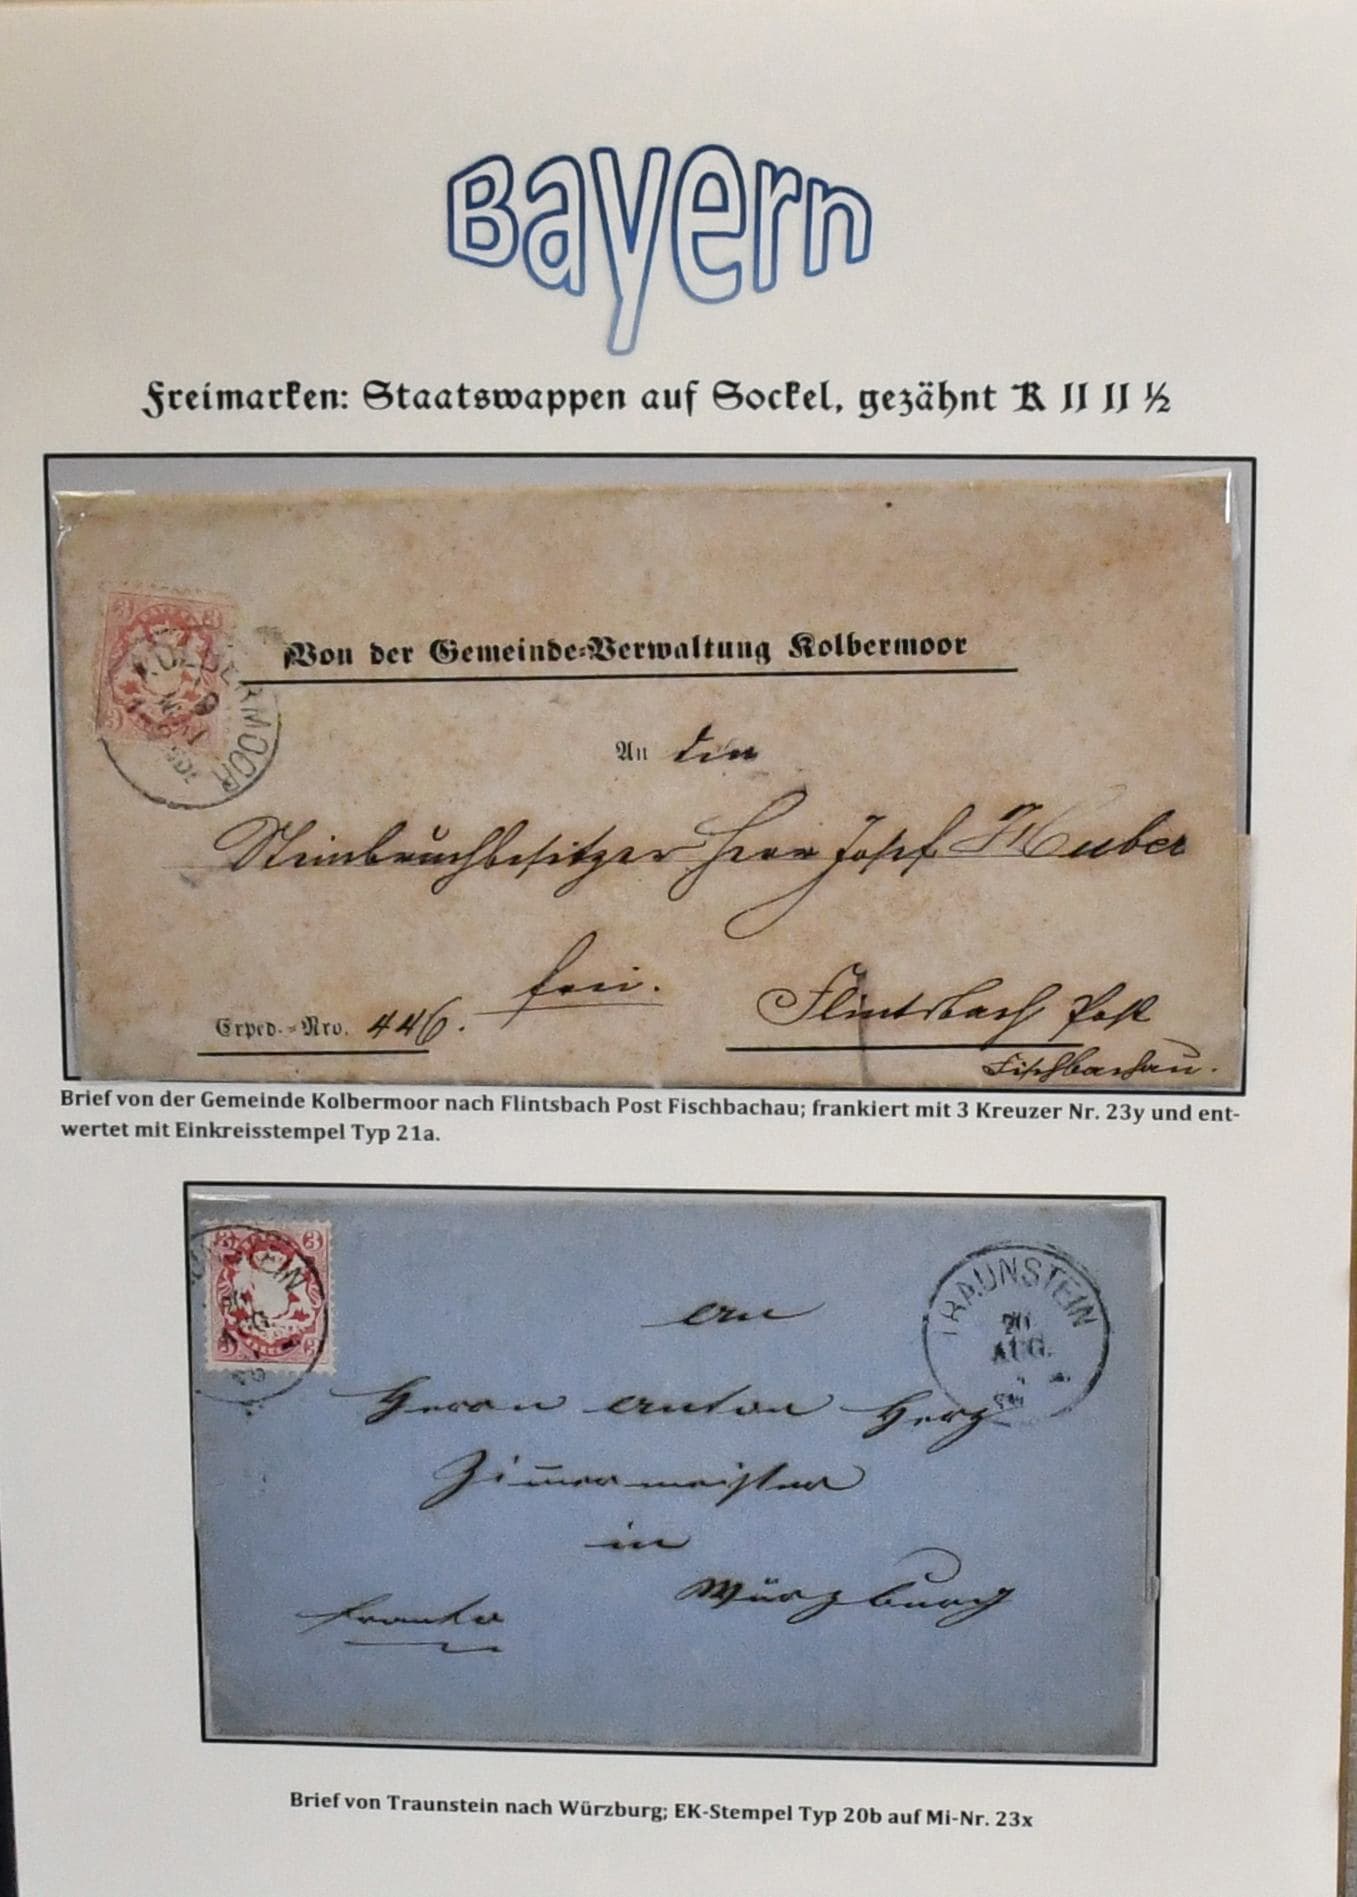 Bayern
Freimarken: Staatswappen auf Sockel, gezähnt K 11 11 ½
3 3
KOLBERMOOR
Von der Gemeinde=Verwaltung Kolbermoor
An den
Steinbruchbesitzer Herrn Josef Huber
frei.
Exped.=Nro. 446.
Flintsbach Post
Fischbachau.
Brief von der Gemeinde Kolbermoor nach Flintsbach Post Fischbachau; frankiert mit 3 Kreuzer Nr. 23y und ent-
wertet mit Einkreisstempel Typ 21a.
3 3
3 3
TRAUNSTEIN
20
AUG.
Herrn Anton Herz
Zimermeister
in
Würzburg
franko
Brief von Traunstein nach Würzburg; EK-Stempel Typ 20b auf Mi-Nr. 23x